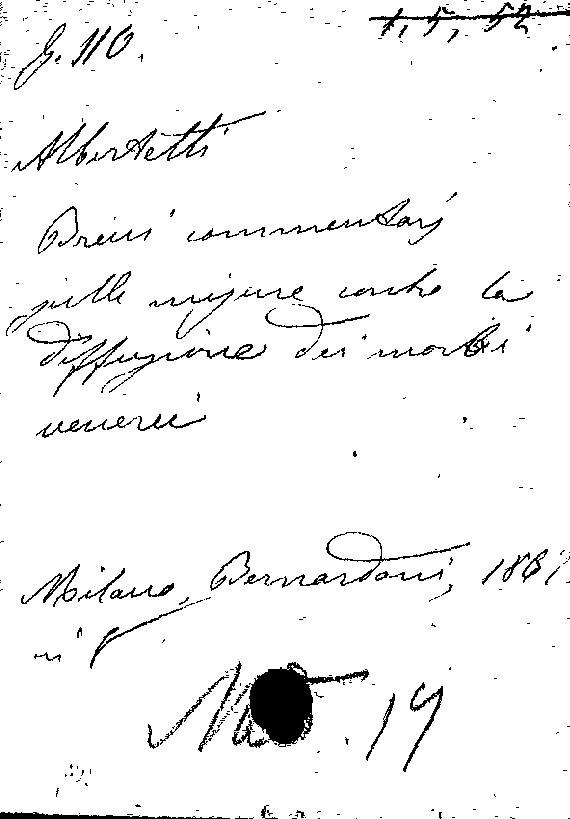 G. 110.
1, 5, 52
Albertetti
Brevi commentarj
sulle misure contro la
diffusione dei morbi
venerei
Milano, Bernardoni, 186
in 8°
19